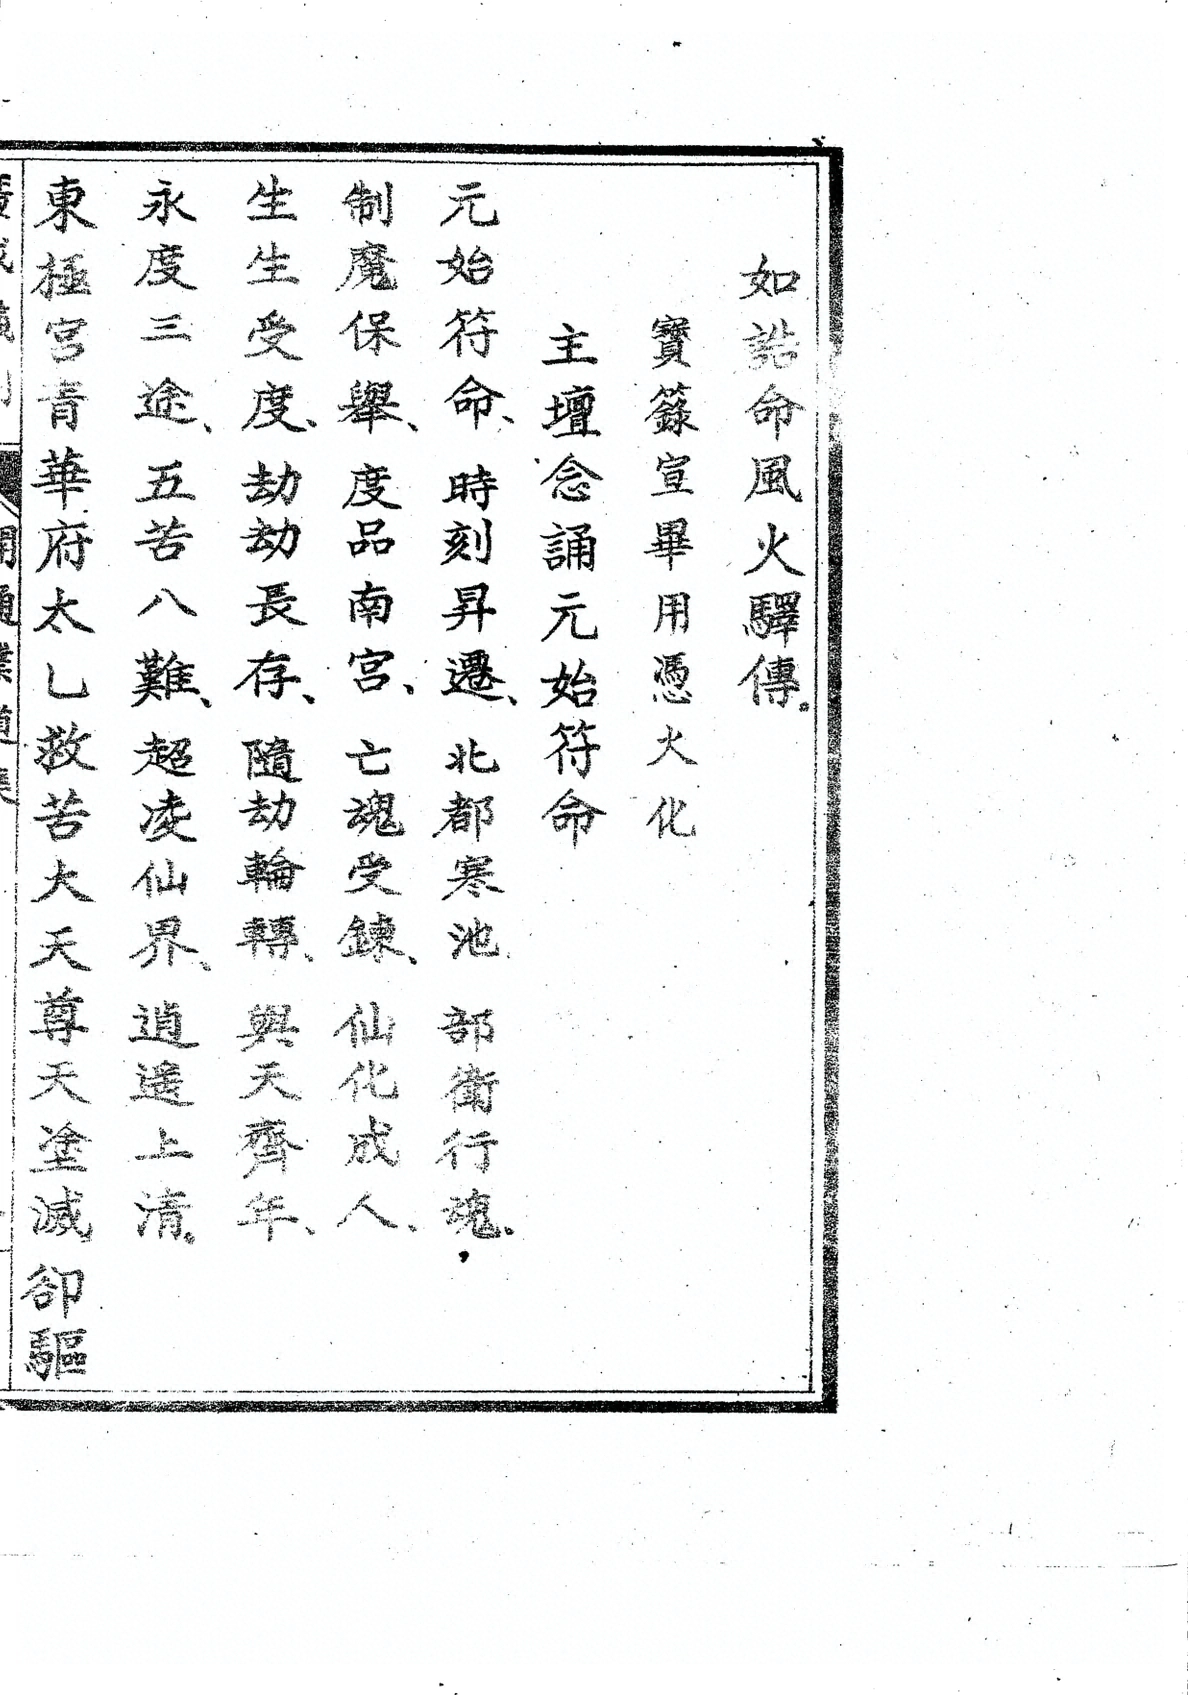 如誥命風火驛傳。
寶籙宣畢用憑火化
主壇念誦元始符命
元始符命、時刻昇遷、北都寒池、部衛行魂。
制魔保舉、度品南宮、亡魂受鍊、仙化成人、
生生受度、劫劫長存、隨劫輪轉、與天齊年、
永度三途、五苦八難、超凌仙界、逍遥上清。
東極宮青華府太乚救苦大天尊天塗滅卻驅